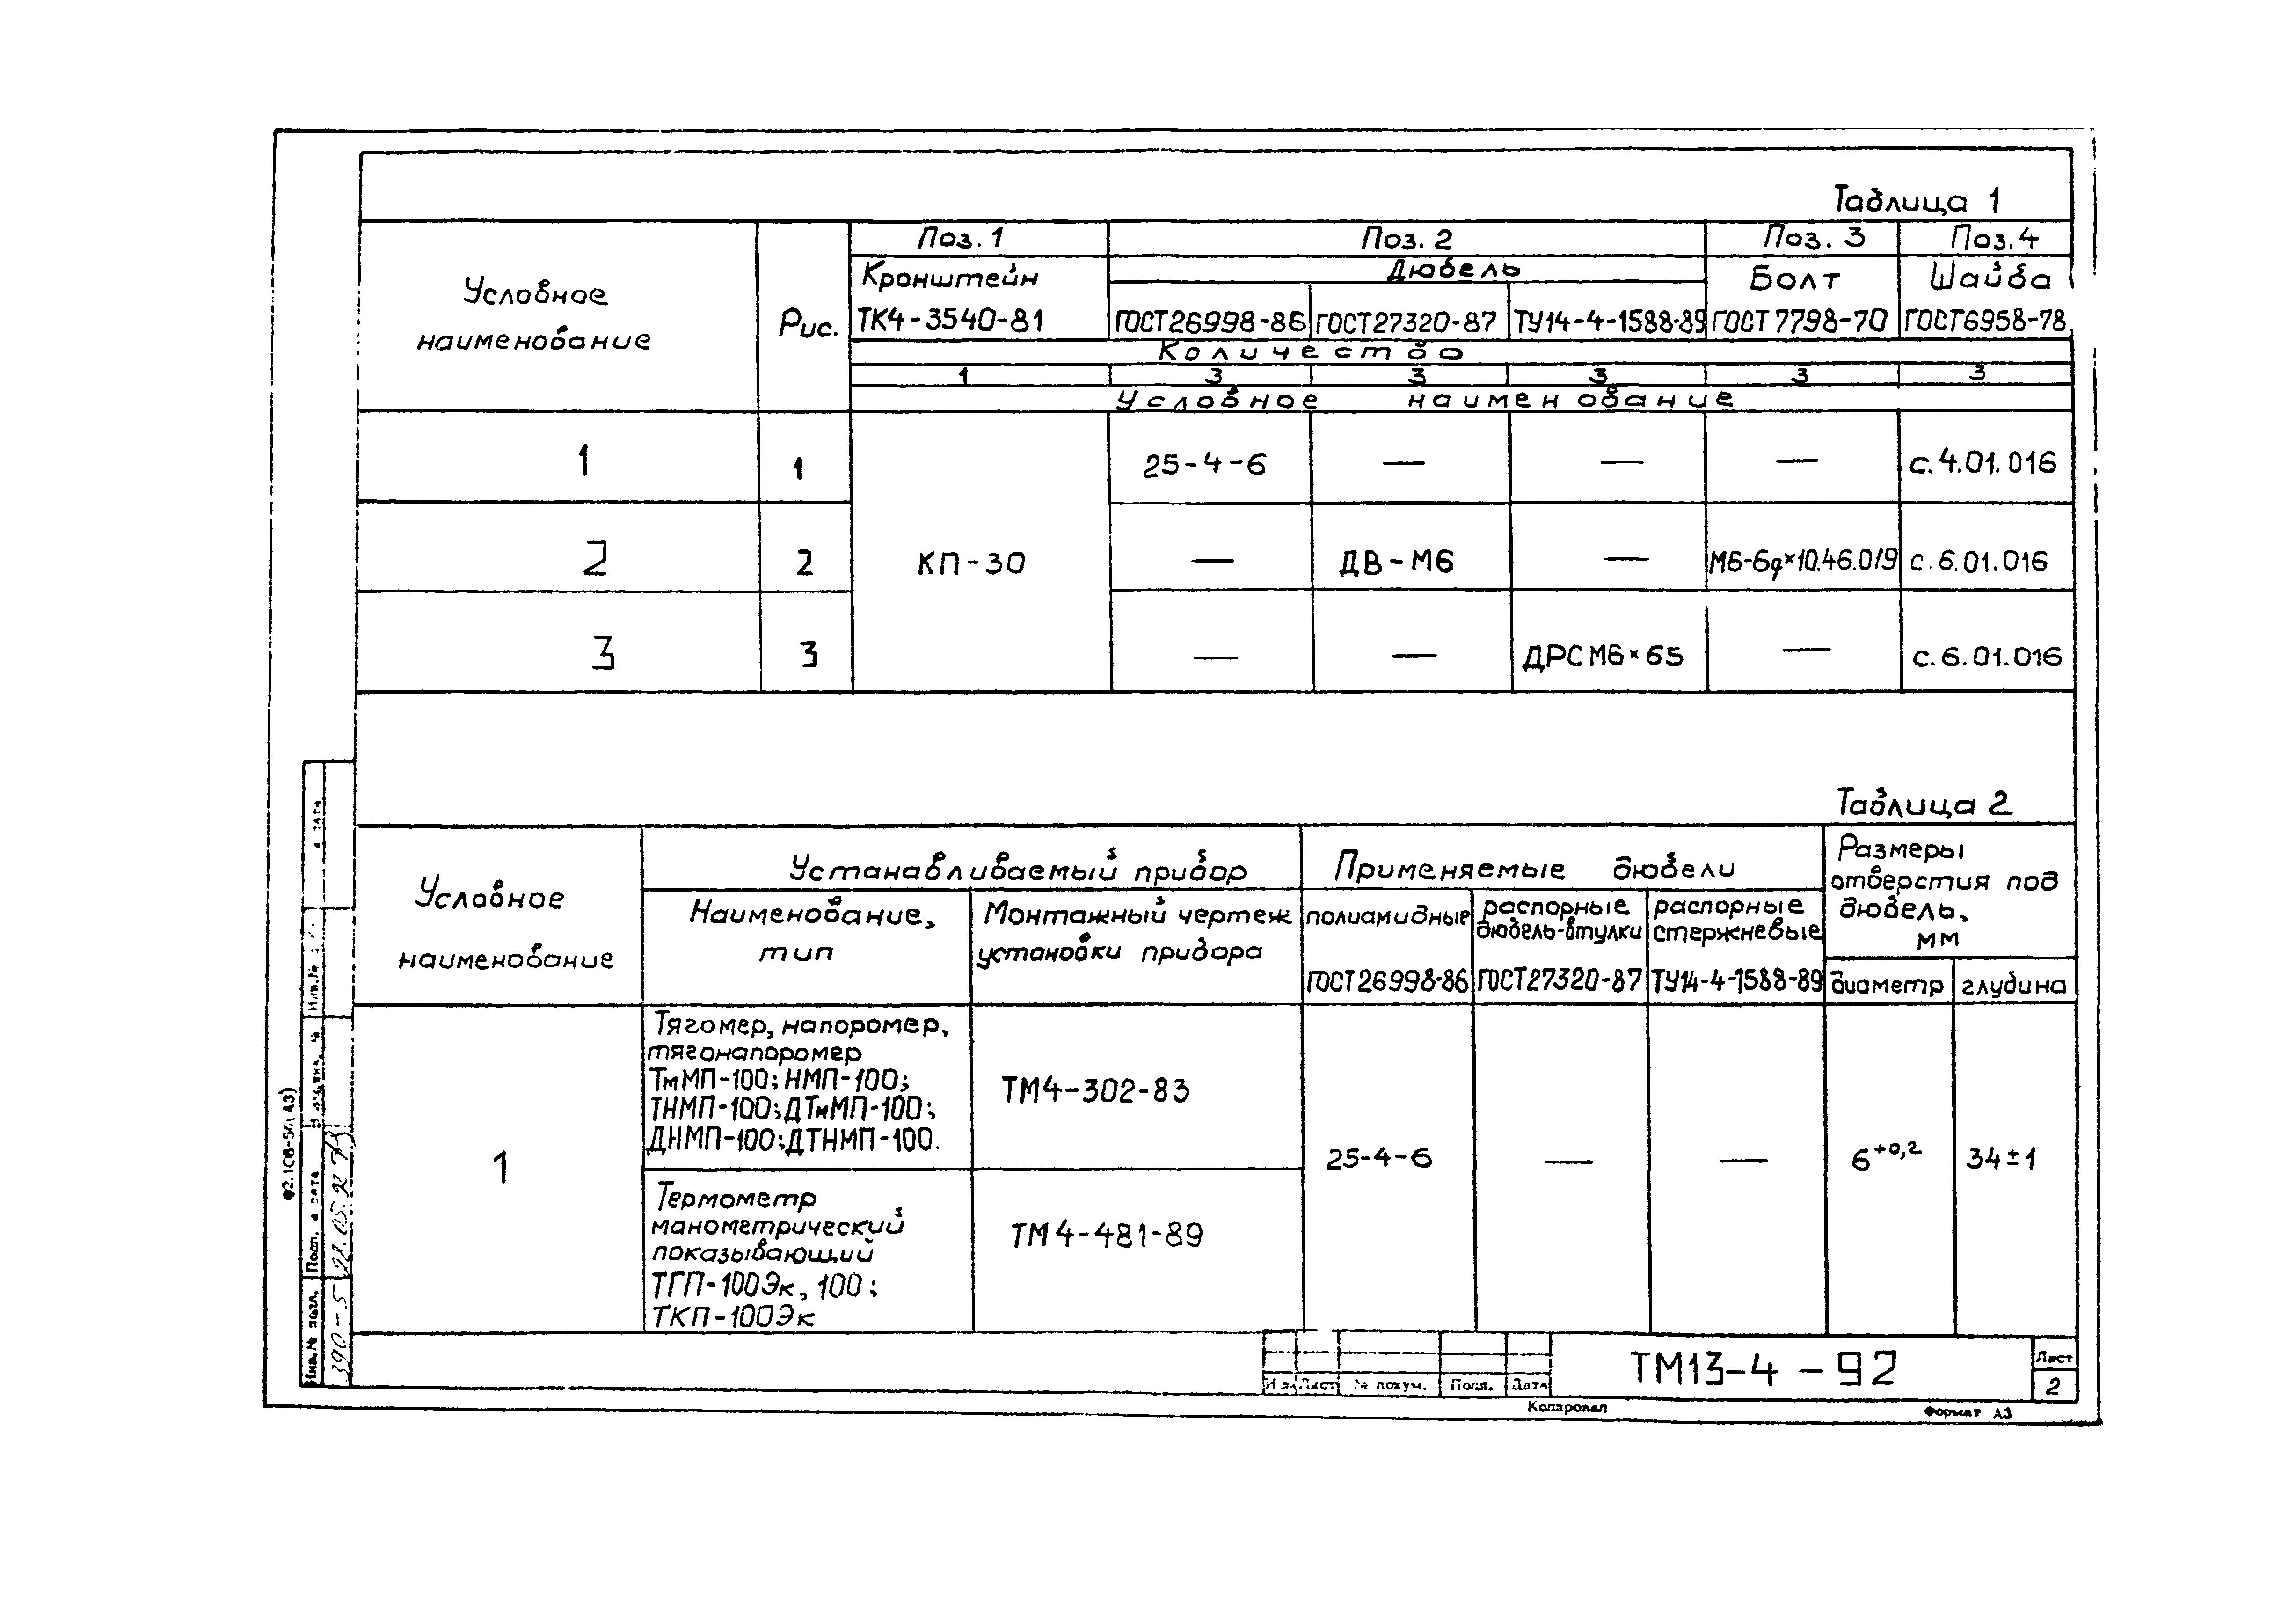 Таблица 1
Условное наименование
Рис.
Поз. 1
Поз. 2
Поз. 3
Поз. 4
Кронштейн
ТК4-3540-81
Дюбель
ГОСТ26998-86
ГОСТ27320-87
ТУ14-4-1588-89
Болт
ГОСТ 7798-70
Шайба
ГОСТ6958-78
Количество
1 3 3 3 3 3
Условное наименование
1 1 25-4-6 — — — с.4.01.016
2 2 КП-30 — ДВ-М6 — М6-6g×10.46.019 с.6.01.016
3 3 — — ДРС М6×65 — с.6.01.016
Таблица 2
Условное
наименование
Устанавливаемый прибор
Наименование,
тип
Монтажный чертеж
установки прибора
Применяемые дюбели
полиамидные
ГОСТ26998-86
распорные
дюбель-втулки
ГОСТ27320-87
распорные
стержневые
ТУ14-4-1588-89
Размеры
отверстия под
дюбель,
мм
диаметр
глубина
1
Тягомер, напоромер,
тягонапоромер
ТмМП-100; НМП-100;
ТНМП-100; ДТмМП-100;
ДНМП-100; ДТНМП-100.
ТМ4-302-83
Термометр
манометрический
показывающий
ТГП-100Эк, 100;
ТКП-100Эк
ТМ4-481-89
25-4-6 — — 6+0,2 34±1
Лист № докум. Подп. Дата
ТМ13-4-92
Лист
2
Копировал
Формат А3
Инв.№ подл.
390-5
Подп. и дата